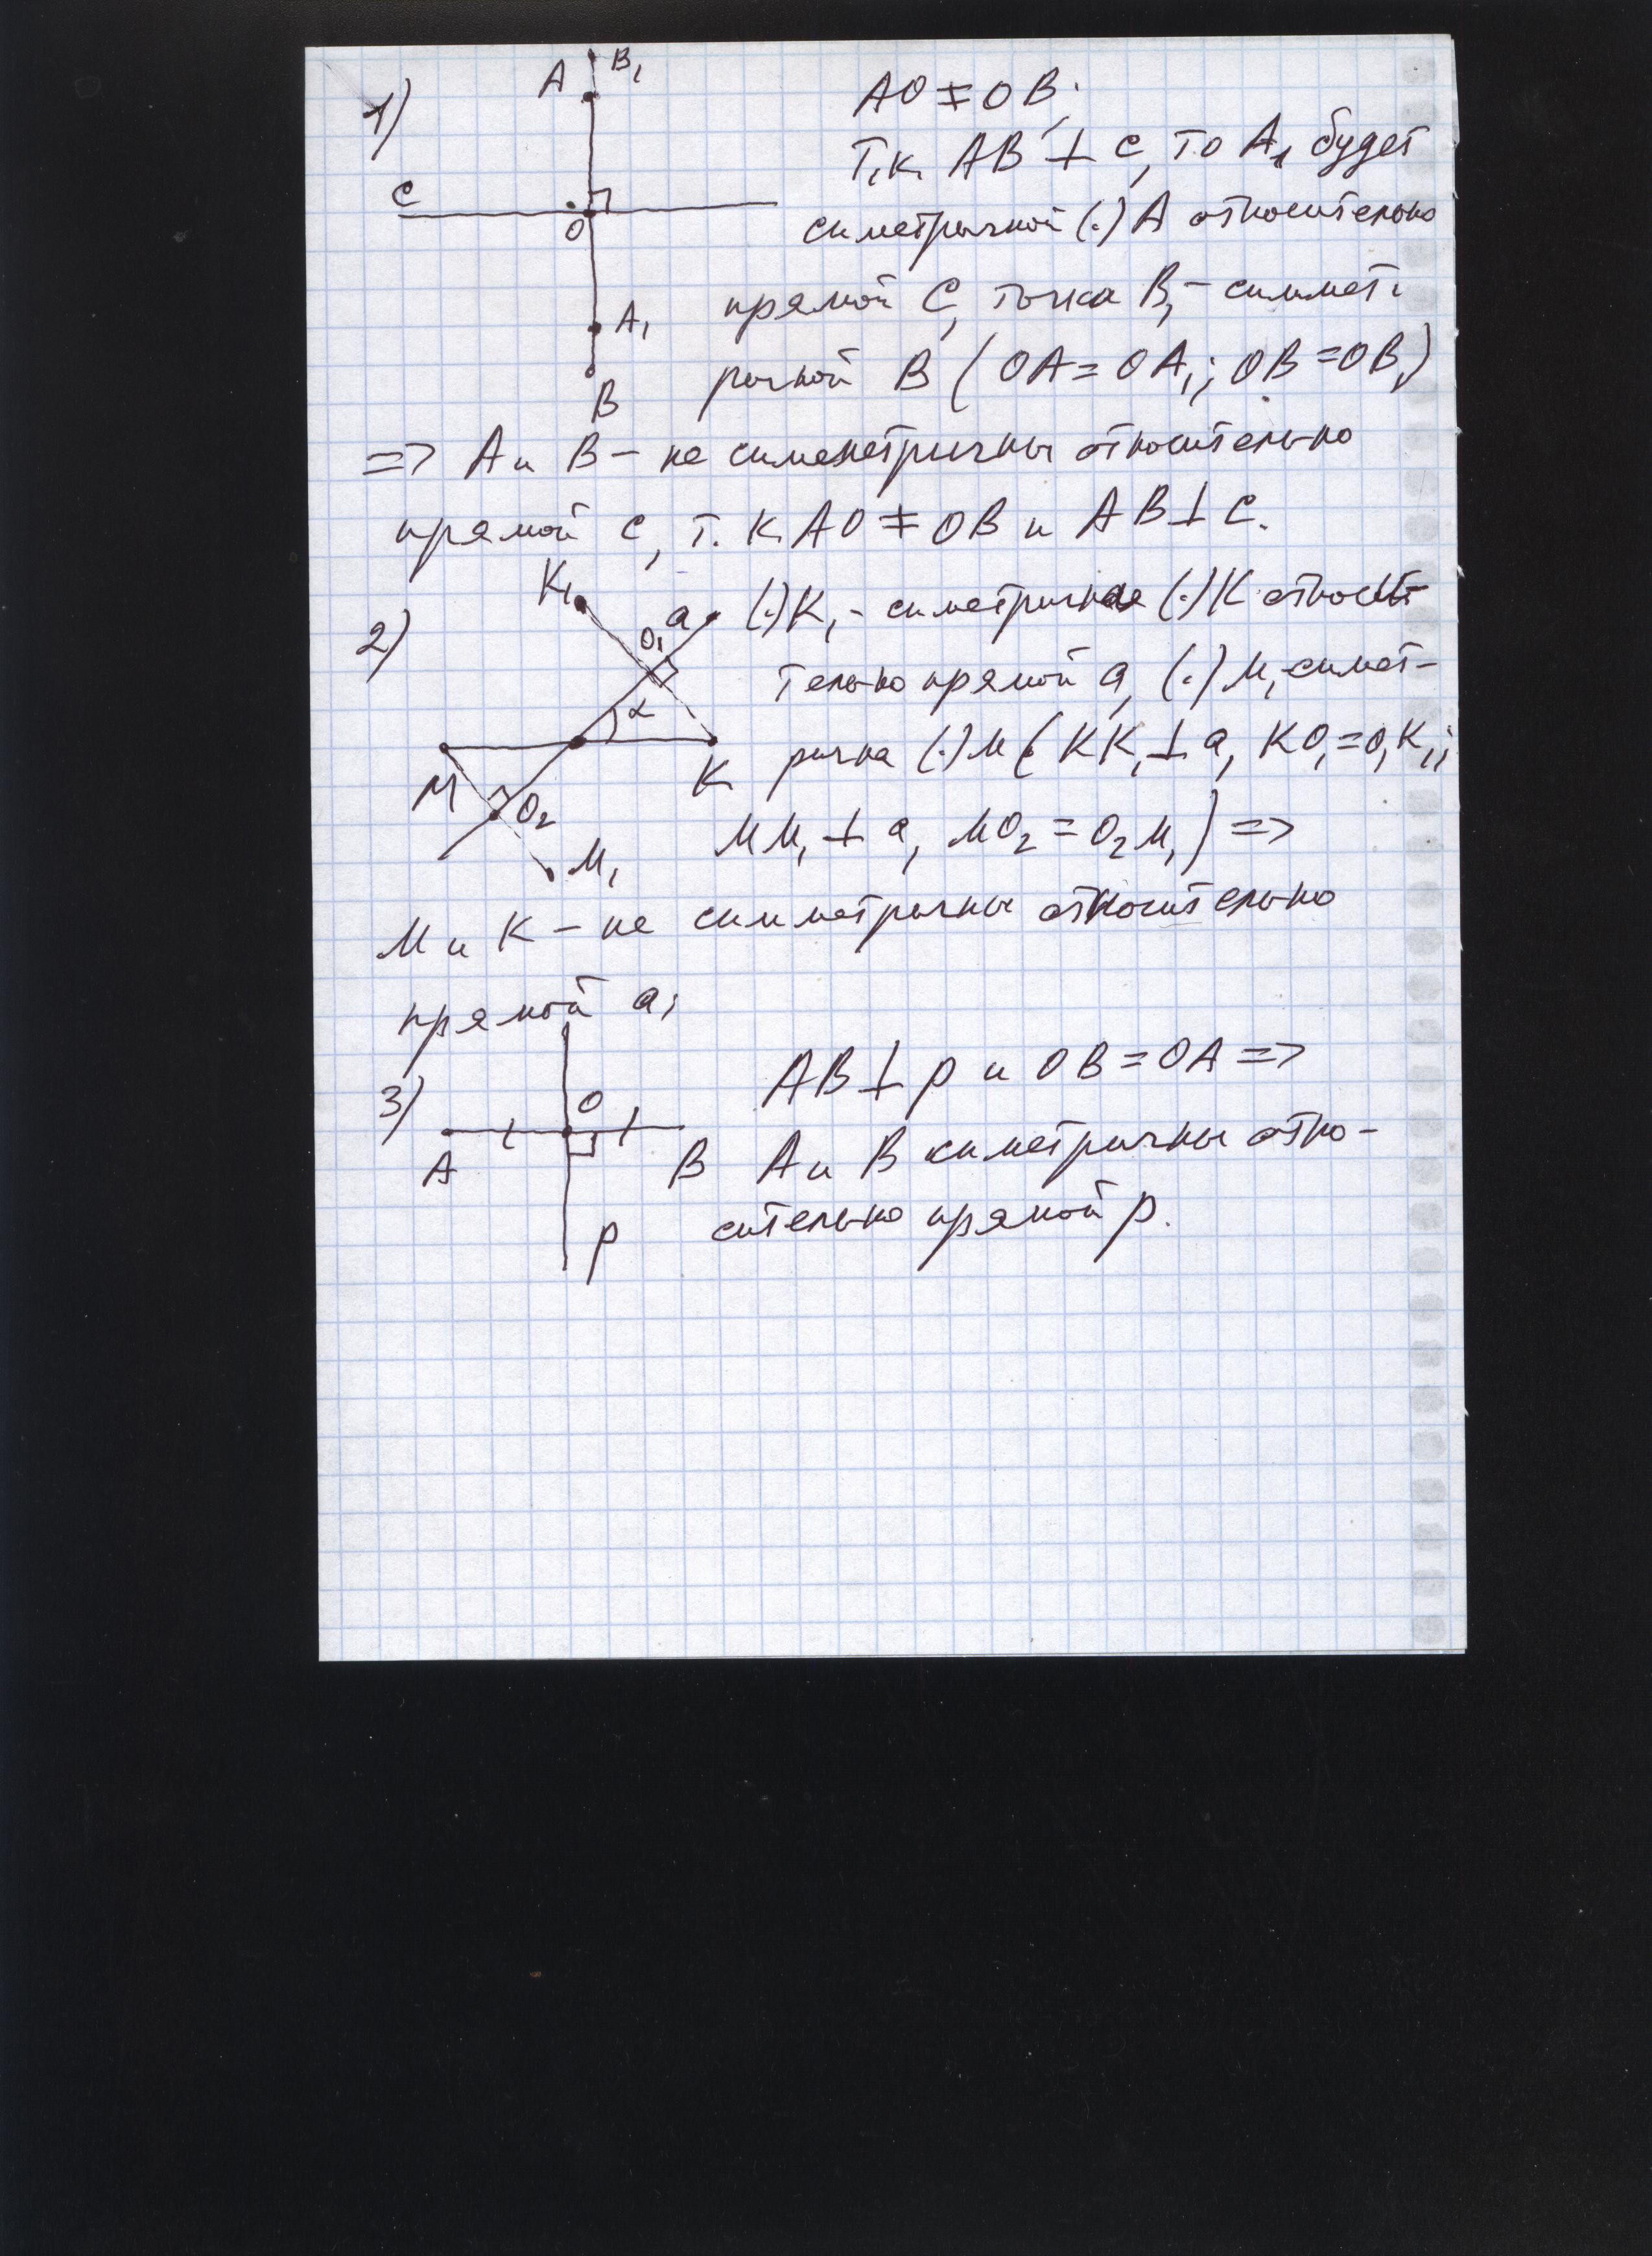 1)
A
B₁
C
O
A₁
B
AO ≠ OB.
Т.к. AB ⊥ C, то A₁ будет
симетричной (·) A относительно
прямой C, точка B₁ – симмет.
ричной B (OA = OA₁; OB = OB₁)
=> A и B – не симметричны относительно
прямой C, т. к AO ≠ OB и AB ⊥ C.
2)
K₁
a
O₁
α
M
K
O₂
M₁
(·) K₁ - симетричная (·) K относи-
тельно прямой a, (·) M₁ симет-
рична (·) M ( KK₁ ⊥ a, KO₁ = O₁K₁;
MM₁ ⊥ a, MO₂ = O₂M₁) =>
M и K – не симметричны относительно
прямой a.
3)
O
A
B
p
AB ⊥ p и OB = OA =>
A и B симетричны отно-
сительно прямой p.